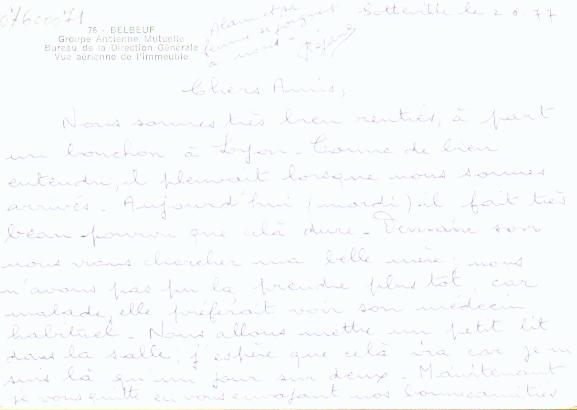 0760071
76 - BELBEUF
Groupe Ancienne Mutuelle
Bureau de la Direction Générale
Vue aérienne de l'immeuble
Sotteville le 2.8.77
à nous
Chers Amis,
Nous sommes très bien rentrés, à part
un bouchon à Lyon - Comme de bien
entendu, il pleuvait lorsque nous sommes
arrivés. Aujourd'hui (mardi) il fait très
beau - pourvu que celà dure - Demain soir
nous irons chercher ma belle mère; nous
n'avons pas pu la prendre plus tôt, car
malade, elle préférait voir son médecin
habituel. Nous allons mettre un petit lit
dans la salle, j'espère que celà ira car je ne
suis là qu'un jour sur deux. Maintenant
je vous quitte en vous envoyant nos